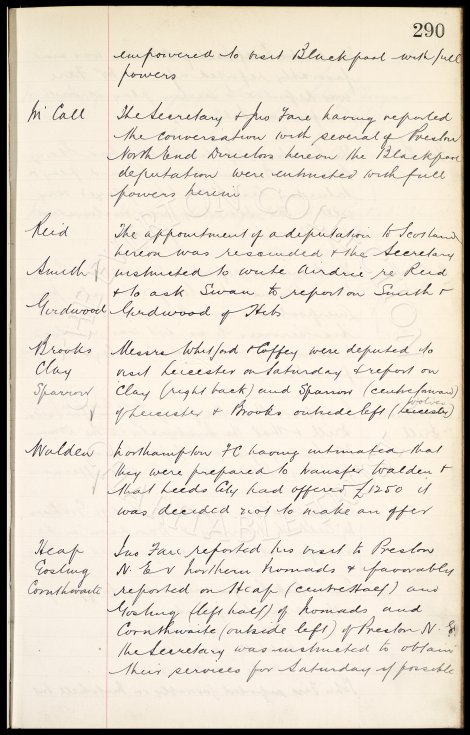 290
empowered to visit Blackpool with full
powers
McCall The Secretary & Jno Fare having reported
the conversation with several of Preston
North End Directors hereon the Blackpool
deputation were entrusted with full
powers herein
Reid The appointment of a deputation to Scotland
hereon was rescinded & the Secretary
Smith instructed to write Airdrie re Reid
& to ask Swan to report on Smith &
Girdwood Girdwood of Hibs
Brooks Messrs Whitford & Coffey were deputed to
Clay visit Leicester on Saturday & report on
Sparrow Clay (right back) and Sparrow (centre forward)
of Leicester & Brooks outside left (Leicester)
Walden Northampton FC having intimated that
they were prepared to transfer Walden &
that Leeds City had offered £1250 it
was decided not to make an offer
Heap Jno Fare reported his visit to Preston
Gosling N.E v Northern Nomads & favorably
Cornthwaite reported on Heap (centre half) and
Gosling (left half) of Nomads and
Cornthwaite (outside left) of Preston N.E
the Secretary was instructed to obtain
their services for Saturday if possible